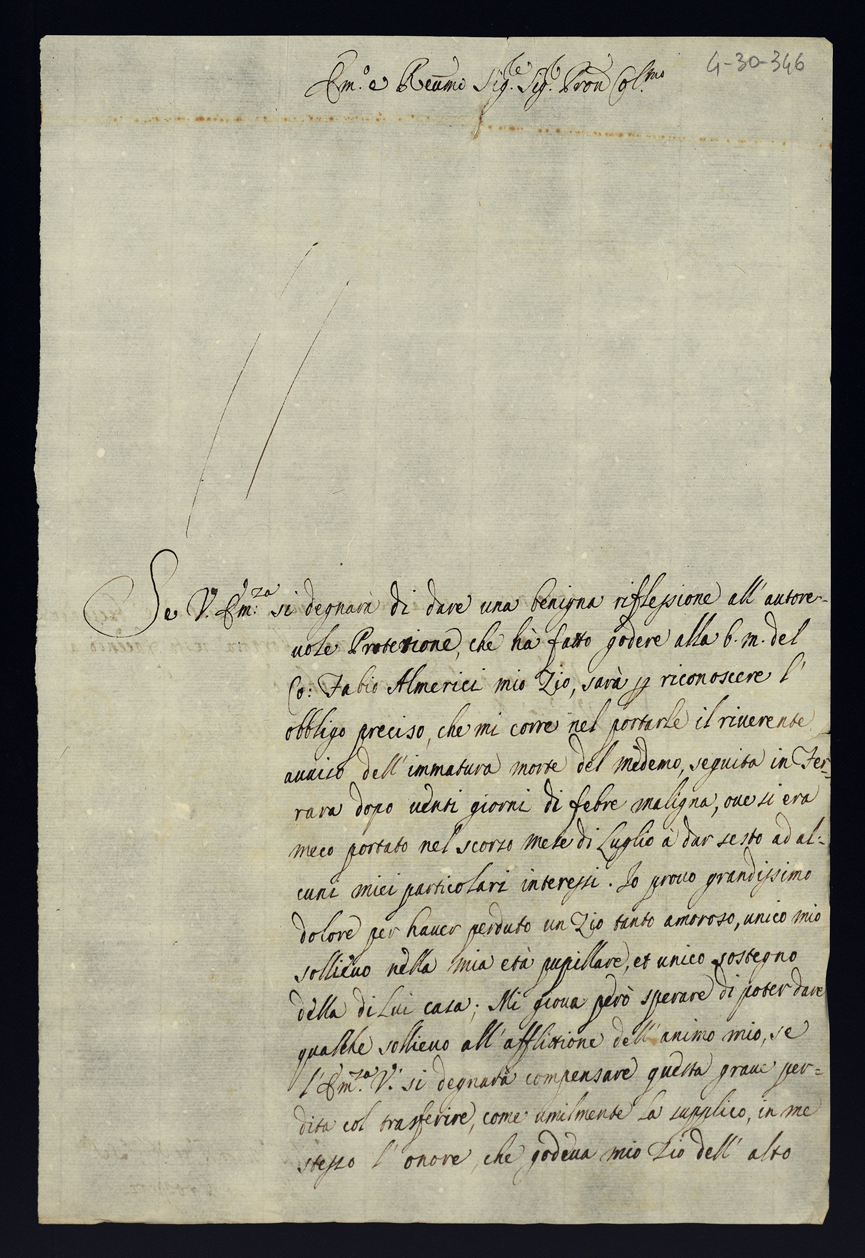 4-30-346
Em.o e Reumo Sig.re Sig.re Pron Col.mo
Se V.ra Em.za si degnarà di dare una benigna riflessione all' autore-
uole Protettione, che hà fatto godere alla b. m. del
Co: Fabio Almerici mio Zio, sarà p riconoscere l'
obbligo preciso, che mi corre nel portarle il riuerente
auuiso dell' immatura morte del medemo, seguita in Fer-
rara dopo uenti giorni di febre maligna, oue si era
meco portato nel scorso mese di Luglio à dar sesto ad al-
cuni miei particolari interessi. Io prouo grandissimo
dolore per hauer perduto un Zio tanto amoroso, unico mio
sollieuo nella mia età pupillare, et unico sostegno
della di Lui casa; Mi gioua però sperare di poter dare
qualche sollieuo all' afflitione dell' animo mio, se
l' Em.za V.ra si degnarà compensare questa graue per=
dita col trasferire, come umilmente La supplico, in me
stesso l' onore, che godeua mio Zio dell' alto